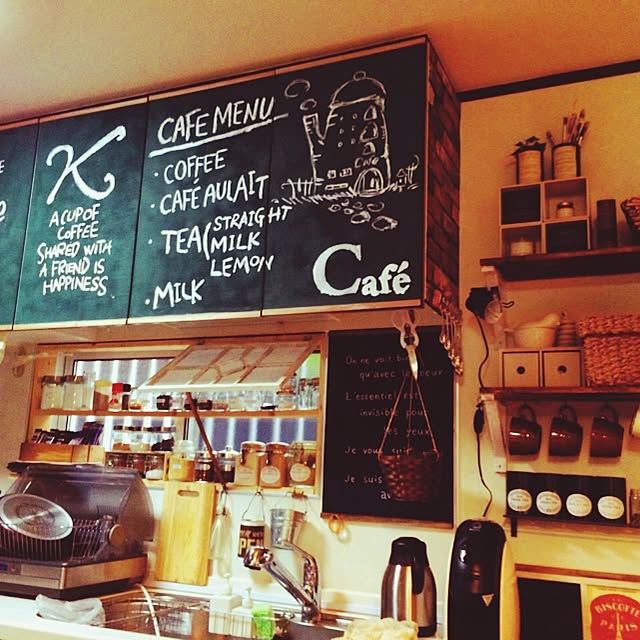 K
A CUP OF
COFFEE
SHARED WITH
A FRIEND IS
HAPPINESS.
CAFE MENU
· COFFEE
· CAFÉ AULAIT
· TEA
STRAIGHT
MILK
LEMON
· MILK
Café
On ne voit
qu'avec le coeur
L'essentiel est
invisible pour
les yeux
Je vous
Je suis
BISCOTTE
PARIS